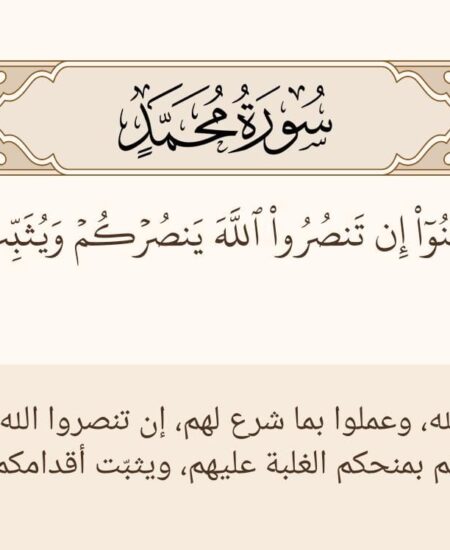 سُورَةُ مُحَمَّدٍ
نُوٓاْ إِن تَنصُرُواْ ٱللَّهَ يَنصُرۡكُمۡ وَيُثَبِّتۡ
له، وعملوا بما شرع لهم، إن تنصروا الله
م بمنحكم الغلبة عليهم، ويثبّت أقدامكم